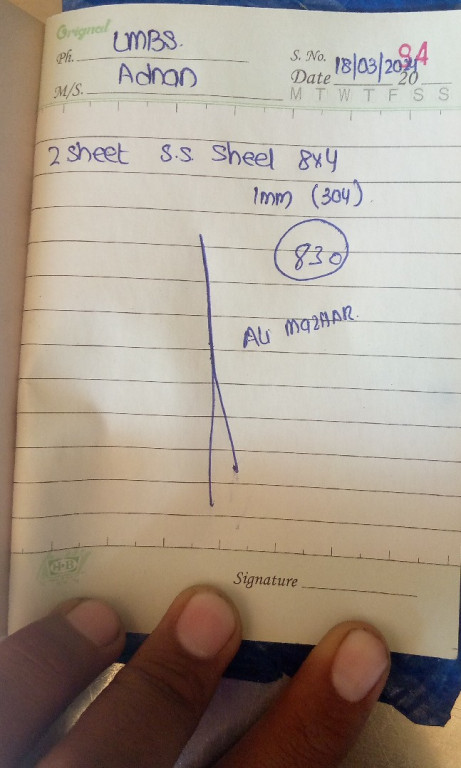 Original
Ph. UMBS.
S. No. 94
M/S. Adnan
Date 18/03/2021 20
M T W T F S S
2 Sheet S.S. Sheel 8x4
1mm (304)
830
ALi MazHAR.
H·B
Signature